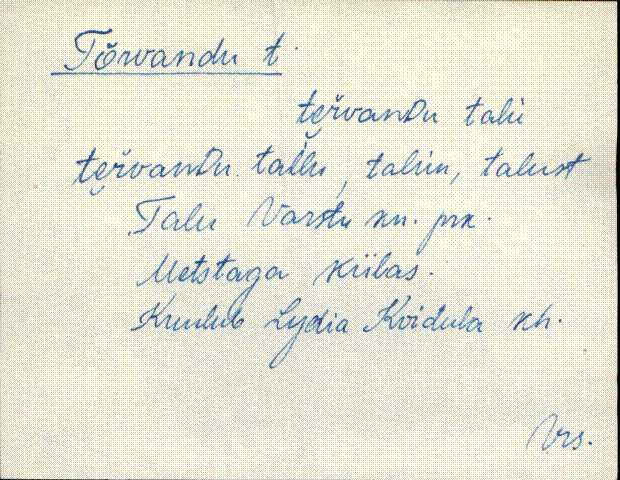 Tõrvandu t.
te̮řvanDu talu
te̮řvanDu tallu, talun, talust
Talu Varstu kn. prk.
Metstaga külas.
Kuulub Lydia Koidula kh.
Vrs.